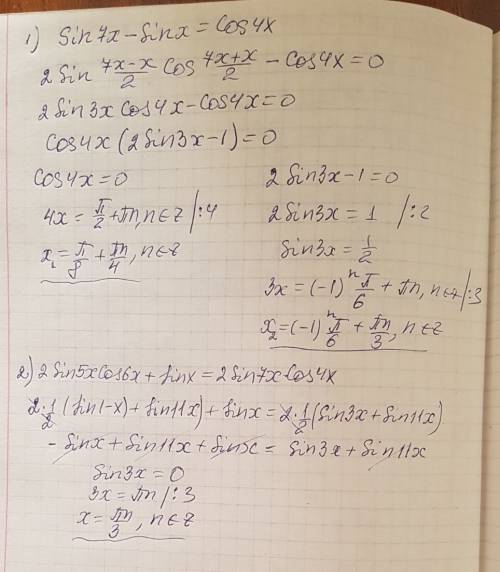 1) Sin7x - Sinx = Cos4x
2Sin (7x-x)/2 Cos (7x+x)/2 - Cos4x = 0
2Sin3xCos4x - Cos4x = 0
Cos4x(2Sin3x-1) = 0
Cos4x = 0
4x = π/2 + πn, n∈Z /:4
x₁ = π/8 + πn/4, n∈Z
2Sin3x - 1 = 0
2Sin3x = 1 /:2
Sin3x = 1/2
3x = (-1)ⁿ π/6 + πn, n∈Z /:3
x₂ = (-1)ⁿ π/6 + πn/3, n∈Z
2) 2Sin5xCos6x + Sinx = 2Sin7xCos4x
2·1/2 (Sin(-x) + Sin11x) + Sinx = 2·1/2 (Sin3x + Sin11x)
- Sinx + Sin11x + Sinx = Sin3x + Sin11x
Sin3x = 0
3x = πn /:3
x = πn/3, n∈Z